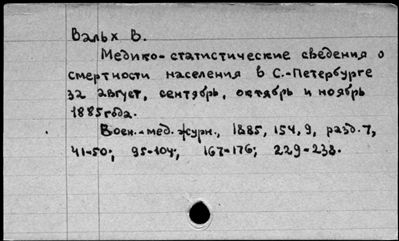 Вальх В.
Медико-статистические сведения о
смертности населения в С.-Петербурге
за август, сентябрь, октябрь и ноябрь
1885 года.
Воен.-мед. журн., 1885, 154, 9, разд. 7,
41-50; 95-104; 167-176; 229-238.